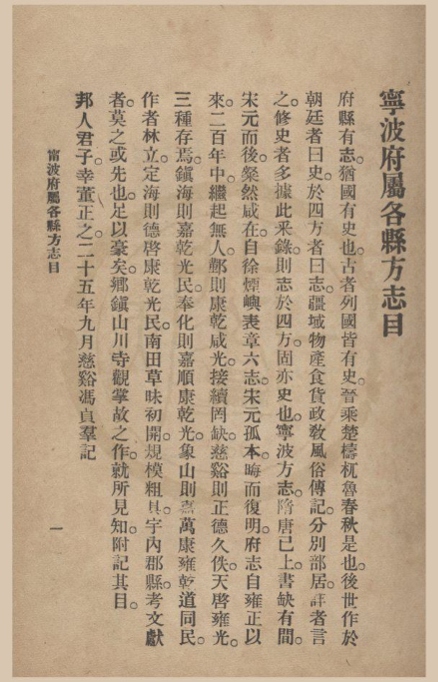 寧波府屬各縣方志目
府縣有志。猶國有史也。古者列國皆有史。晉乘楚檮杌魯春秋是也。後世作於
朝廷者曰史。於四方者曰志。疆域物產食貨政敎風俗傳記。分別部居。詳者言
之。修史者多據此釆錄。則志於四方。固亦史也。寧波方志。隋唐已上。書缺有間。
宋元而後。粲然咸在。自徐煙嶼表章六志。宋元孤本。晦而復明。府志自雍正以
來。二百年中。繼起無人。鄞則康乾咸光。接續罔缺。慈谿則正德久佚。天啓雍光。
三種存焉。鎭海則嘉乾光民。奉化則嘉順康乾光。象山則嘉萬康雍乾道同民。
作者林立。定海則德啓康乾光民。南田草昧初開。規模粗具。宇內郡縣。考文獻
者。莫之或先也。足以豪矣。鄕鎭山川寺觀掌故之作。就所見知。附記其目。
邦人君子。幸董正之。二十五年九月慈谿馮貞羣記
甯波府屬各縣方志目
一